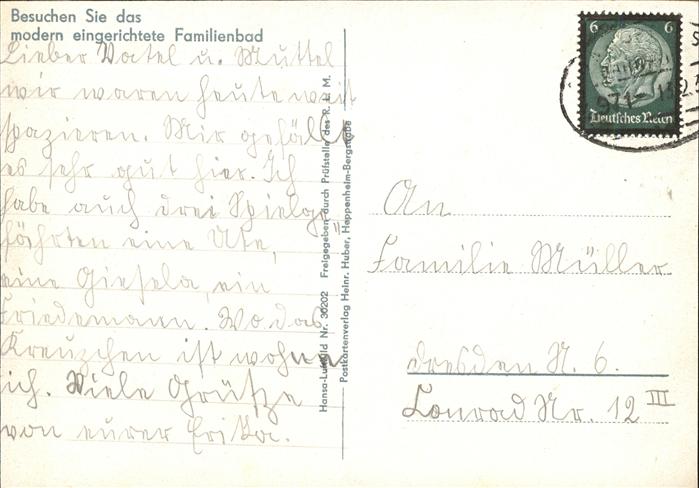 Besuchen Sie das
modern eingerichtete Familienbad
Lieber Vatel u. Muttel
wir waren heute weit
spazieren. Mir gefällt
es sehr gut hier. Ich
habe auch drei Spielge=
fährten eine Ute,
eine Giesela, ein
Friedemann. Wo das
Kreuzchen ist wohne
ich. Viele Grüsze
von eurer Erika.
Hansa-Luftbild Nr. 30202 Freigegeben durch Prüfstelle des R. L. M.
Postkartenverlag Heinr. Huber, Heppenheim-Bergstraße
6 6
Deutsches Reich
An
Familie Müller
Dresden N. 6.
Conrad Nr. 12 III